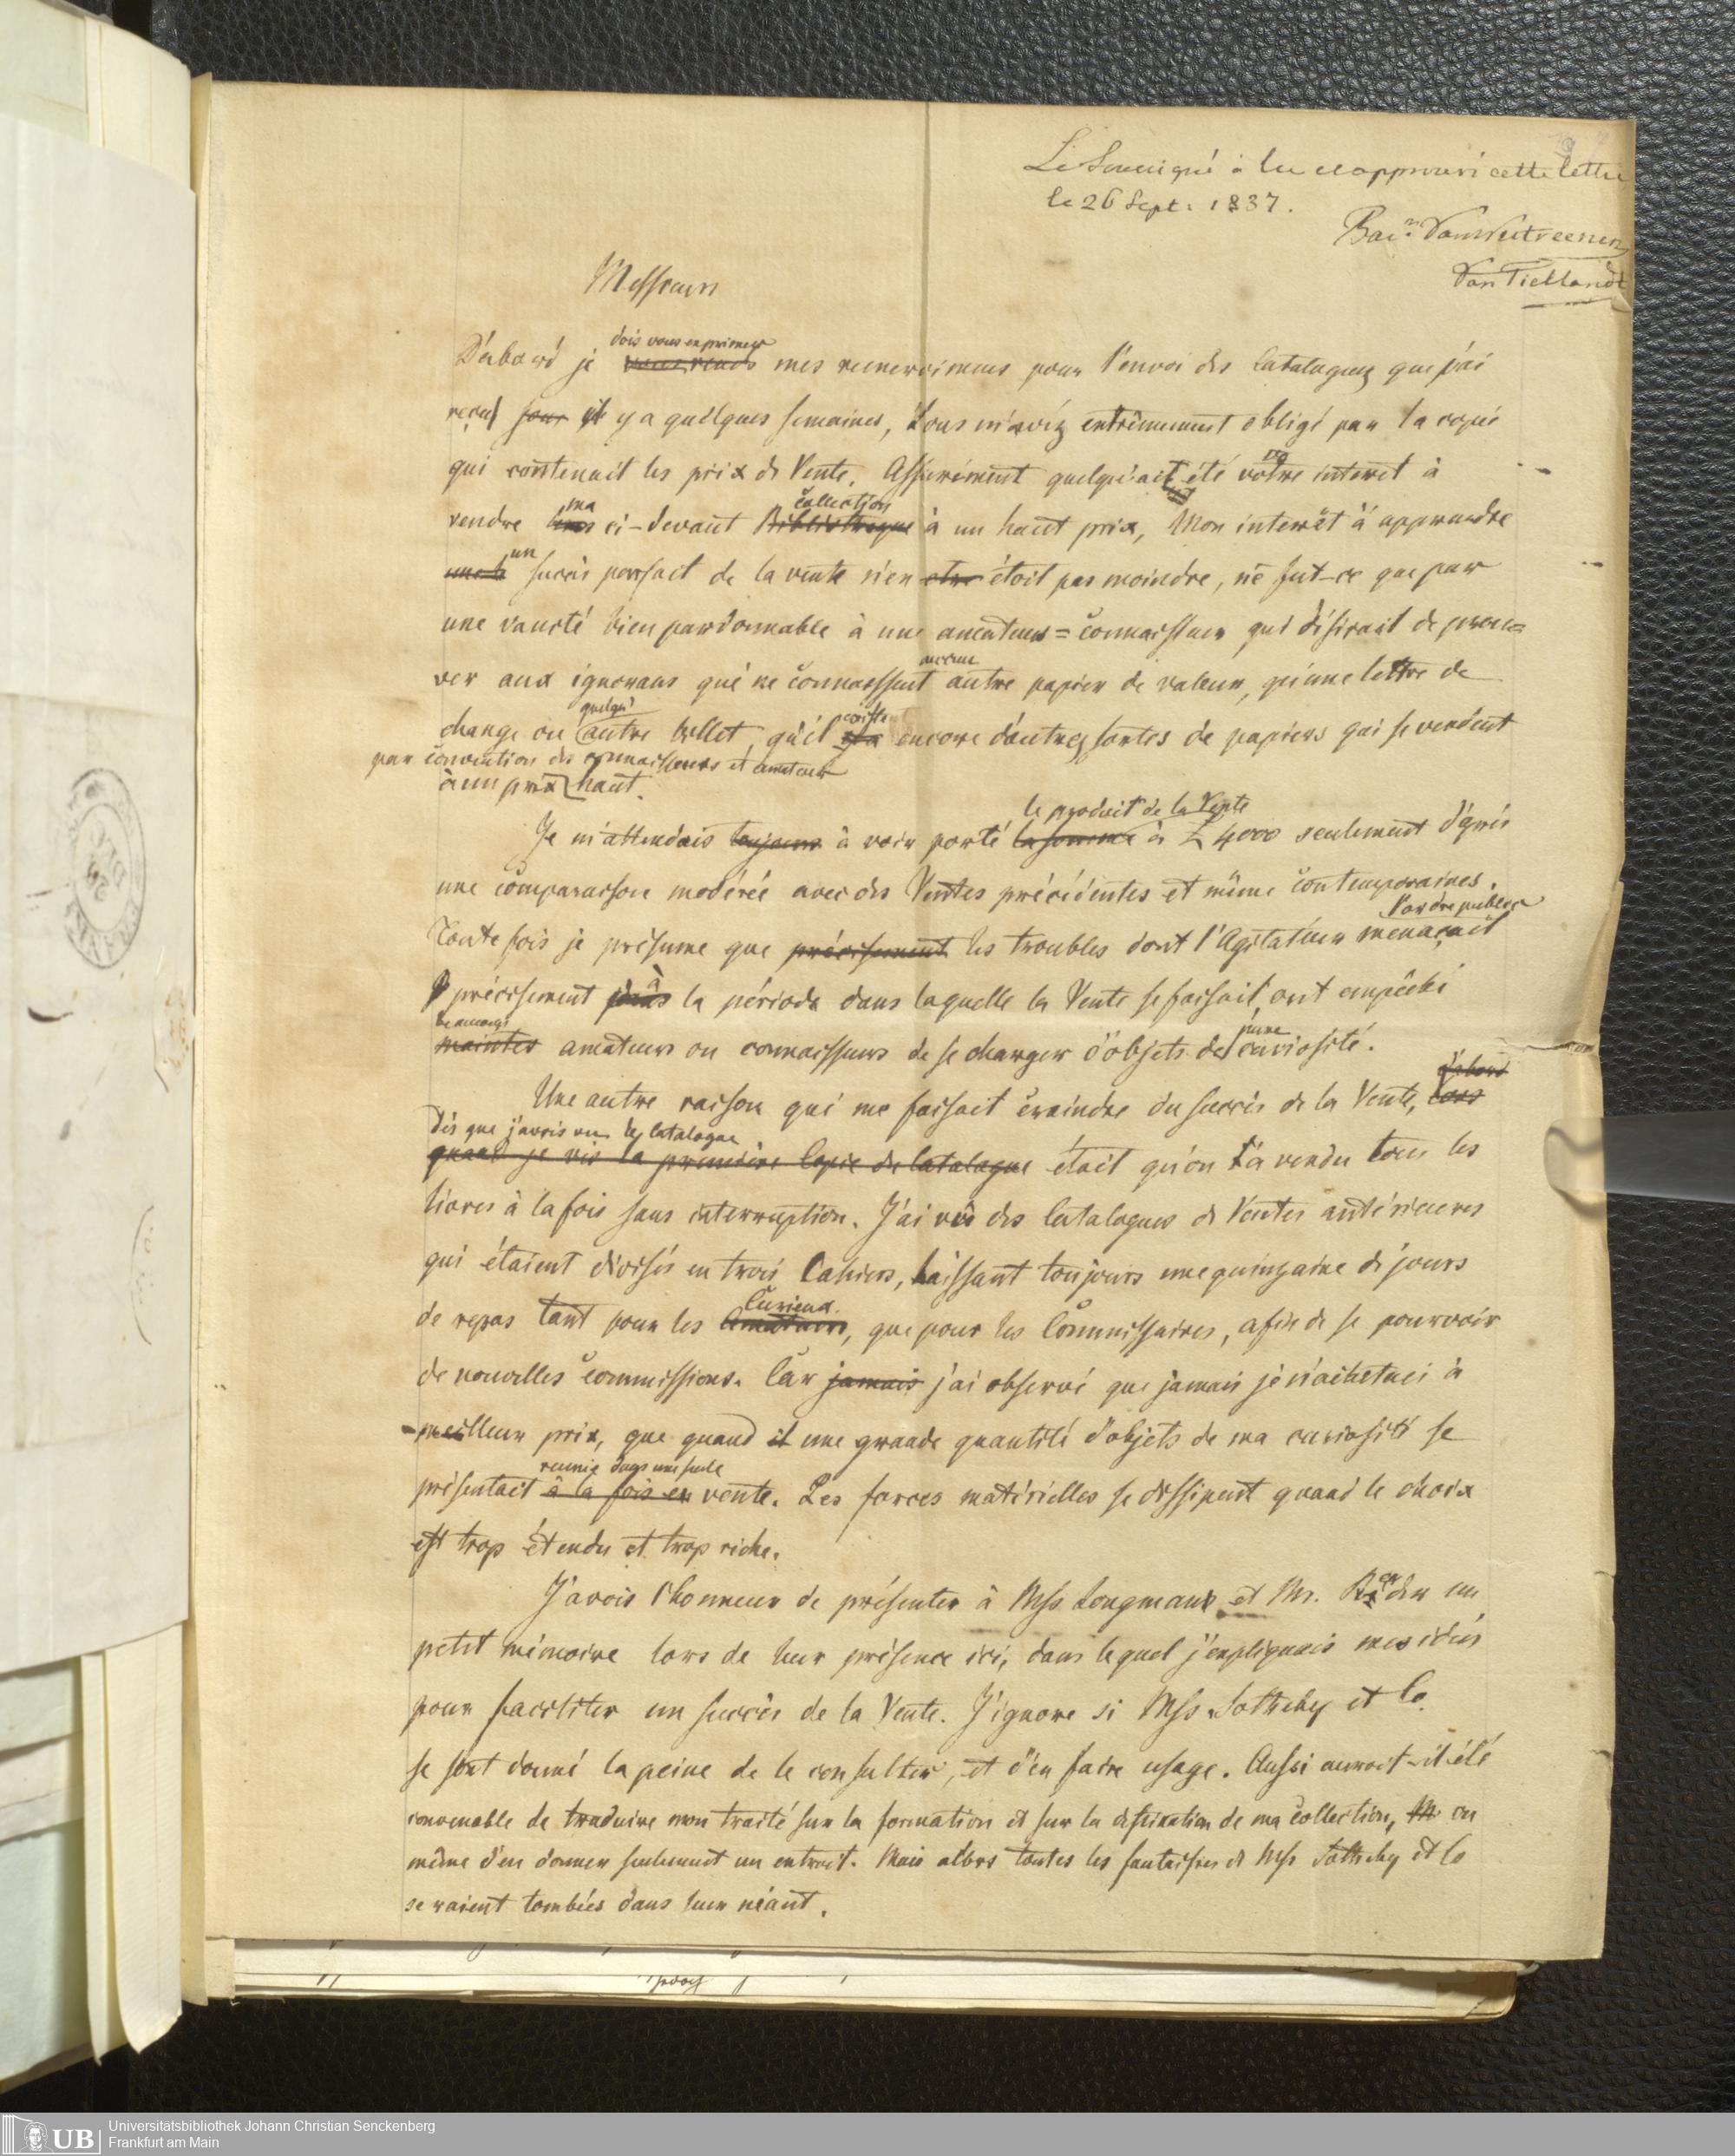 Le Soussigné a lu et approuvé cette lettre
le 26 Sept. 1837.
Baron Van Westreenen
Van Tiellandt
Messieurs
dois vous exprimer
D'abord je vous rends mes remercimens pour l'envoi des Catalogues que j'ai
reçus il y a quelques semaines, Vous m'avéz extrêmement obligé par la copie
qui contenait les prix de Vente. Assurément quelqu'ait été votre interet à
ma collection
vendre ci-devant Bibliotheque à un haut prix, Mon interêt à apprendre
un
succès parfait de la vente n'en étoit pas moindre, ne fut-ce que par
une vanité bien pardonnable à une amateur=connaisseur qui désirait de prou=
aucun
ver aux ignorans qui ne connaissent autre papier de valeur, qu'une lettre de
quelqu' existe
change ou autre billet, qu'il encore d'autres sortes de papiers qui se vendent
par convention des connaisseurs et amateurs
à un prix haut.
le produit de la Vente
Je m'attendais toujours à voir porté la somme à £ 4000 seulement d'après
une comparaison modérée avec des Ventes précédentes et même contemporaines.
l'ordre public
Toute fois je présume que précisement les troubles dont l'Agitateur menaçait
à
précisement dans la période dans laquelle la Vente se faisait, ont empêché
beaucoup
maintes amateurs ou connaisseurs de se charger d'objets de curiosité.
pure
d'abord
Une autre raison qui me faisait craindre du succès de la Vente, lors
dès que j'avois vu le Catalogue
quand je vis la première Copie du Catalogue était qu'on a vendu tous les
livres à la fois sans interruption. J'ai vû des Catalogues de Ventes antérieures
qui étaient divisés en trois Cahiers, laissant toujours une quinzaine de jours
Curieux
de repos tant pour les Amateurs, que pour les Commissaires, afin de se pourvoir
de nouvelles commissions. Car jamais j'ai observé que jamais je n'achetai à
meilleur prix, que quand il une grande quantité d'objets de ma curiosité se
reunie dans une seule
présentait à la fois en vente. Les forces matérielles se dissipent quand le choix
est trop étendu et trop riche.
J'avois l'honneur de présenter à Mss. Longmans et Mr. un
petit mémoire lors de leur présence ici, dans lequel j'expliquais mes idées
pour faciliter un succès de la Vente. J'ignore si Mss. Sotheby et Co.
se sont donné la peine de le consulter, et d'en faire usage. Aussi auroit-il été
convenable de traduire mon traité sur la formation et sur la destination de ma collection, ou
même d'en donner seulement un extrait. Mais alors toutes les fantaisies de Mss Sotheby et Co
seraient tombées dans leur néant.
Universitätsbibliothek Johann Christian Senckenberg
Frankfurt am Main
UB